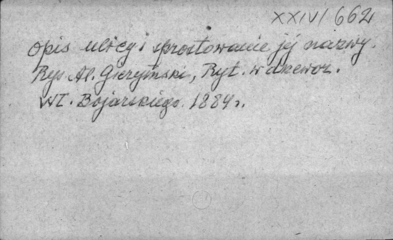 XXIV/662
opis ulicy i sprostowanie jej nazwy.
Rys. Al. Gierymski, Ryt. w drzewor.
Wł. Bojarskiego. 1884 r.